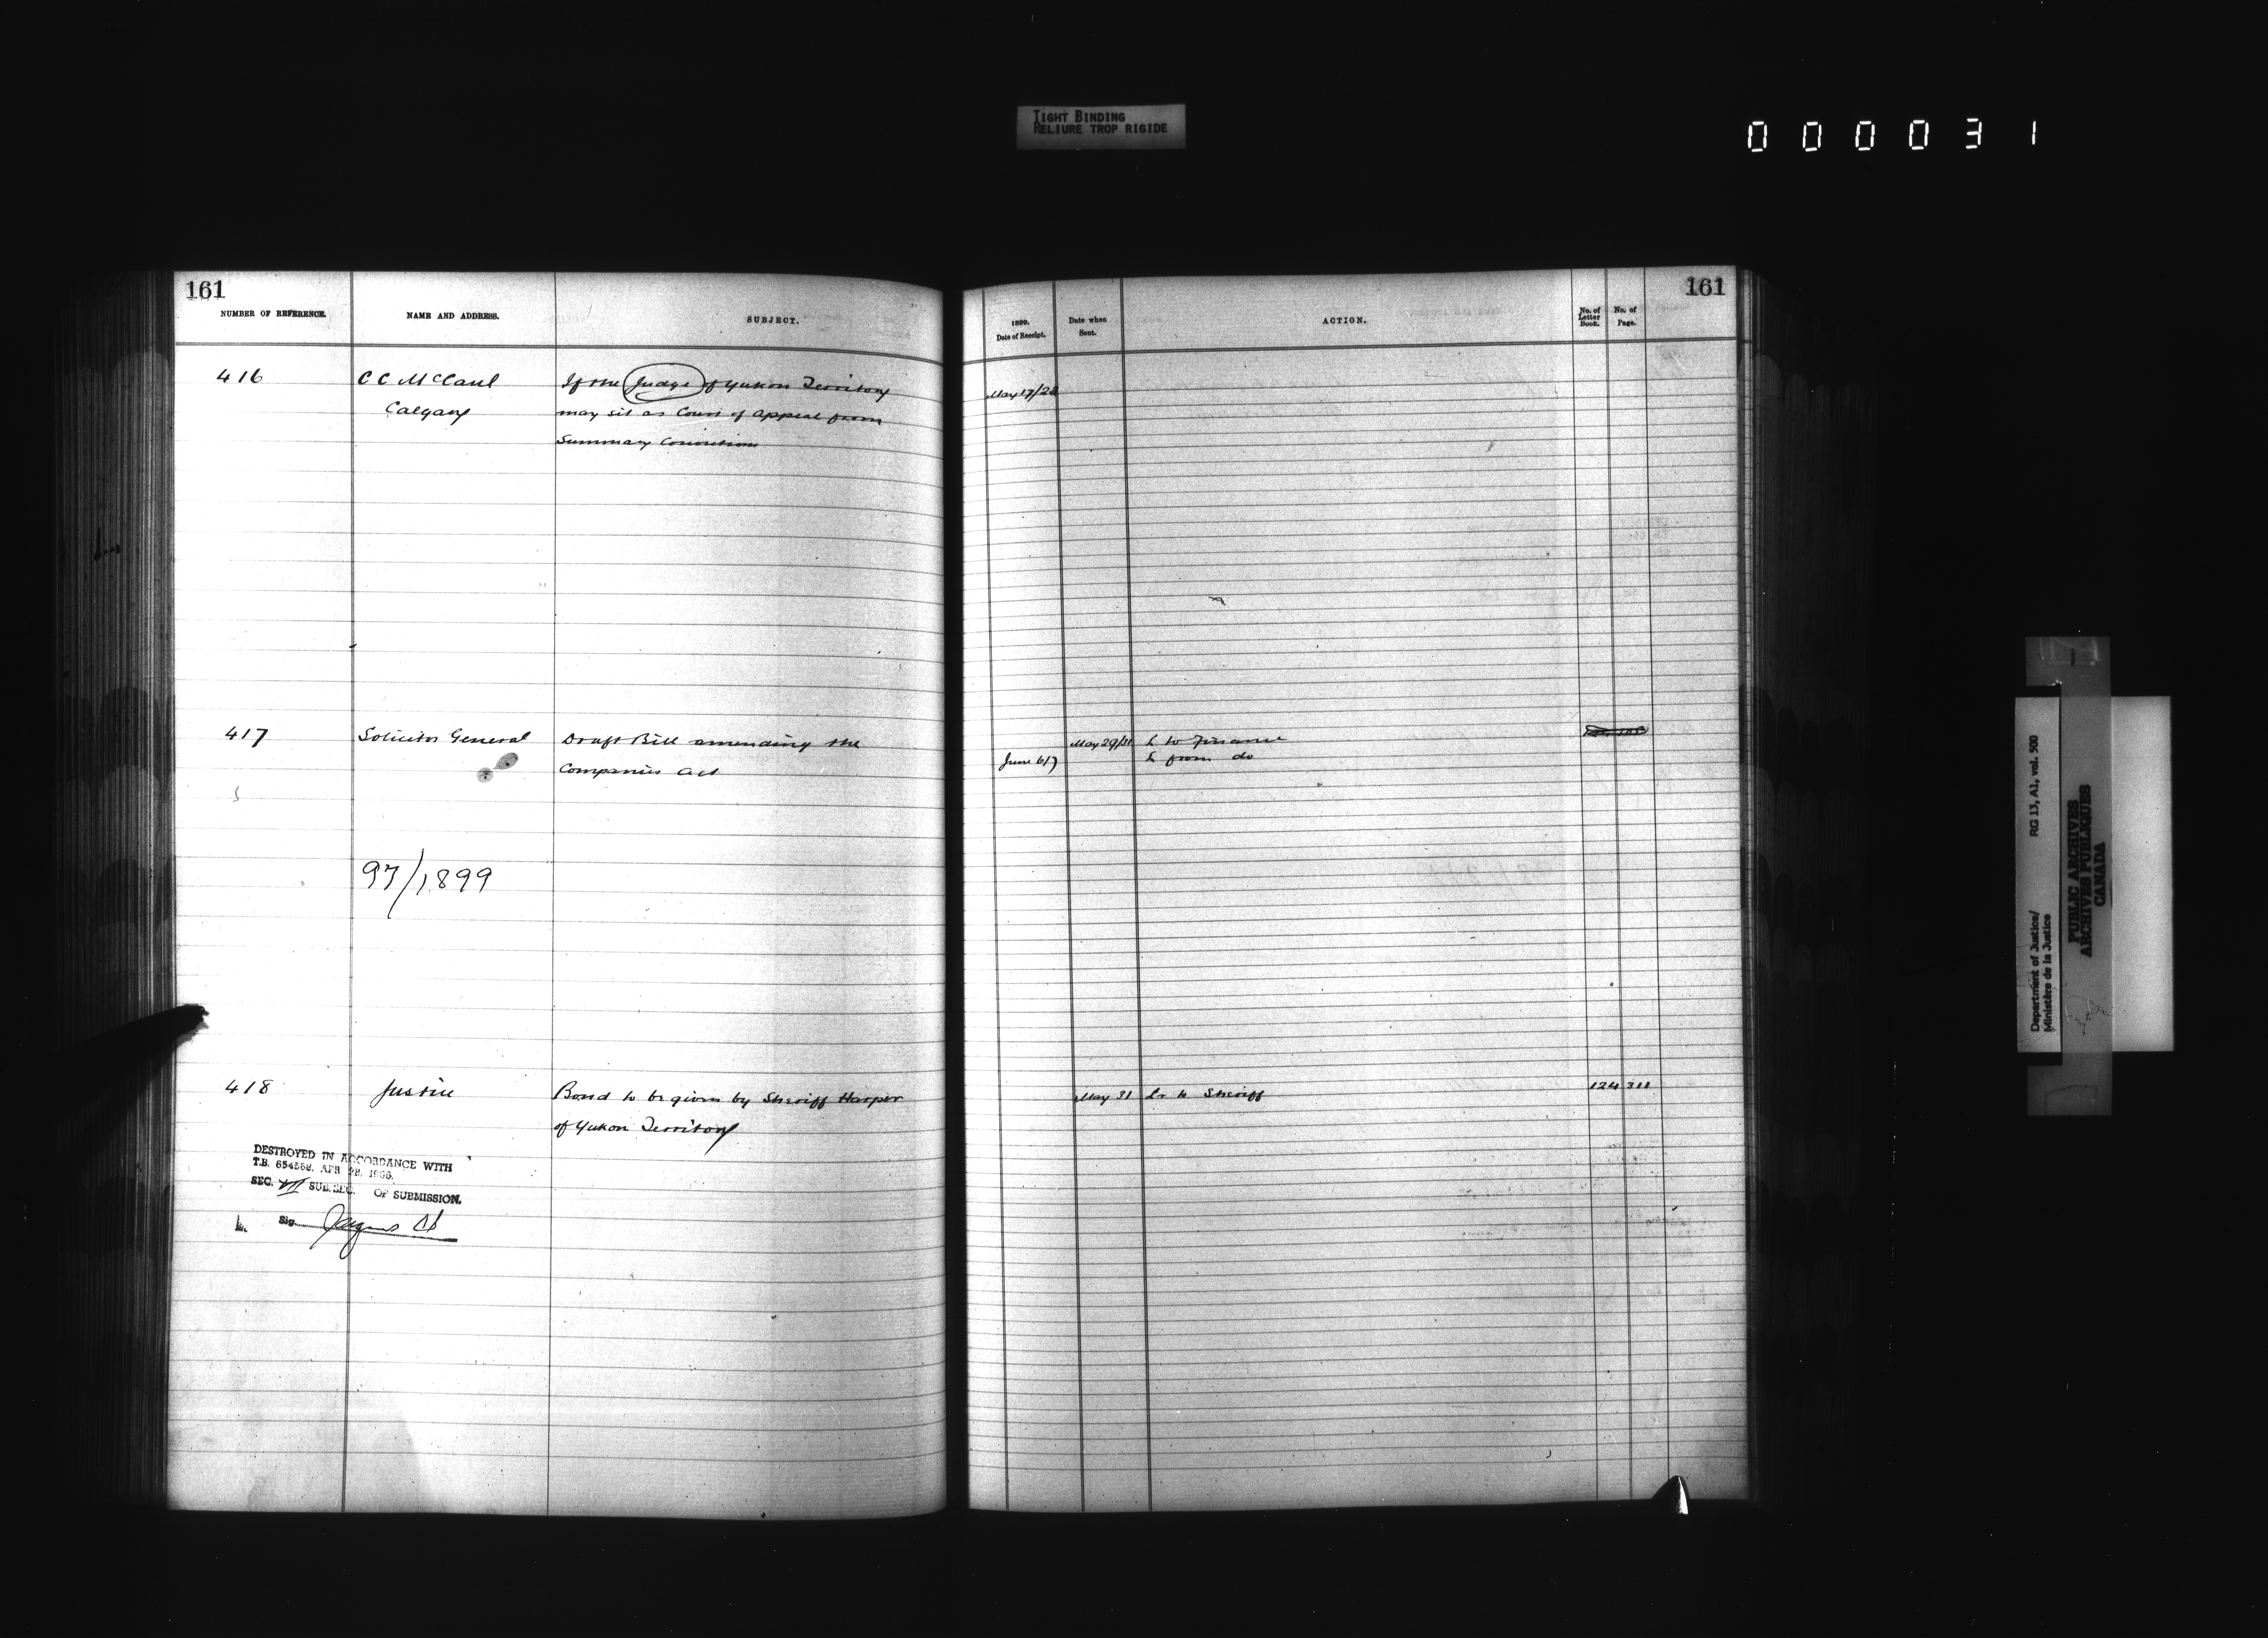 TIGHT BINDING
RELIURE TROP RIGIDE
000031
161
NUMBER OF REFERENCE.
NAME AND ADDRESS.
SUBJECT.
416
C C McCaul
Calgary
If the Judge of Yukon Territory
may sit as Court of appeal from
Summary Convictions
417
Solicitor General
Draft Bill amending the
Companies Act
97/1899
418
Justice
Bond to be given by Sheriff Harper
of Yukon Territory
DESTROYED IN ACCORDANCE WITH
T.B. 654568. APR 28. 1966.
SEC. VII SUB. SEC. OF SUBMISSION.
Sig.
161
1899.
Date of Receipt.
Date when
Sent.
ACTION.
No. of
Letter
Book.
No. of
Page.
May 17/28
May 29/31 L to Finance
June 6/7 L from do
May 31 Lr to Sheriff 124 311
Department of Justice/ RG 13, A1, vol. 500
Ministère de la Justice
PUBLIC ARCHIVES
ARCHIVES PUBLIQUES
CANADA